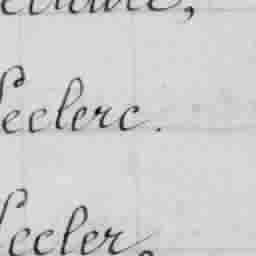 Leclerc.
Lecler